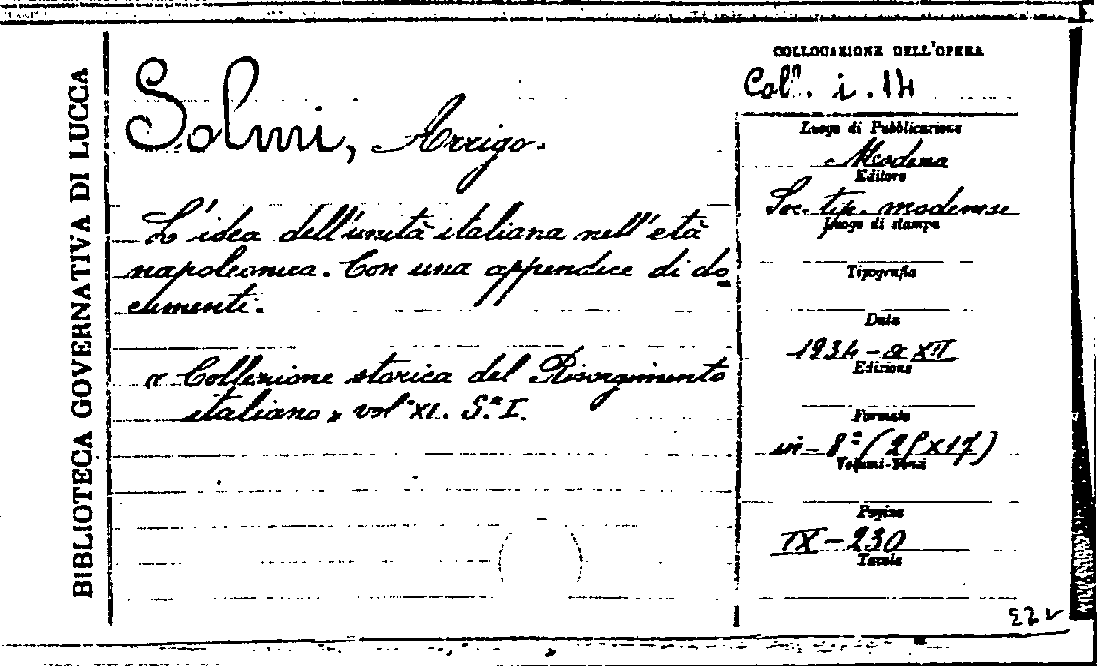 BIBLIOTECA GOVERNATIVA DI LUCCA
Solmi, Arrigo.
L'idea dell'unità italiana nell'età
napoleonica. Con una appendice di do
cumenti.
« Collezione storica del Risorgimento
italiano » vol. XI. S.ª I.
COLLOCAZIONE DELL'OPERA
Collⁿ. i. 14
Luogo di Pubblicazione
Modena
Editore
Soc. tip. modenese
Luogo di stampa
Tipografia
Data
1934 - XII
Edizione
Formato
in-8º (25×17)
Volumi-Tomi
Pagine
IX-230
Tavole